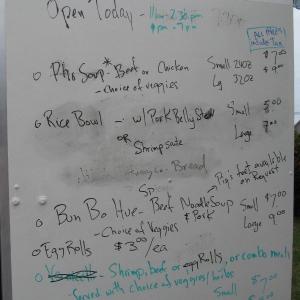 Open Today - 11am - 2:30pm
5pm - 7pm
ALL PRICES
include Tax
o Pho Soup* - Beef or Chicken Small 24oz $7.00
- Choice of veggies Lg 32oz $9.00
o Rice Bowl - w/ Pork Belly Stew Small
OR Large 7.00
Shrimp sate
Bread
Pig's feet available
on Request
o Bun Bo Hue - Beef Noodle Soup
& Pork Small $7.00
- Choice of Veggies Large 9.00
o Egg Rolls - $3.00/ea
o Shrimp, beef or eggRolls, or combo meats
- Served with choice of veggies/herbs
Small $7.00